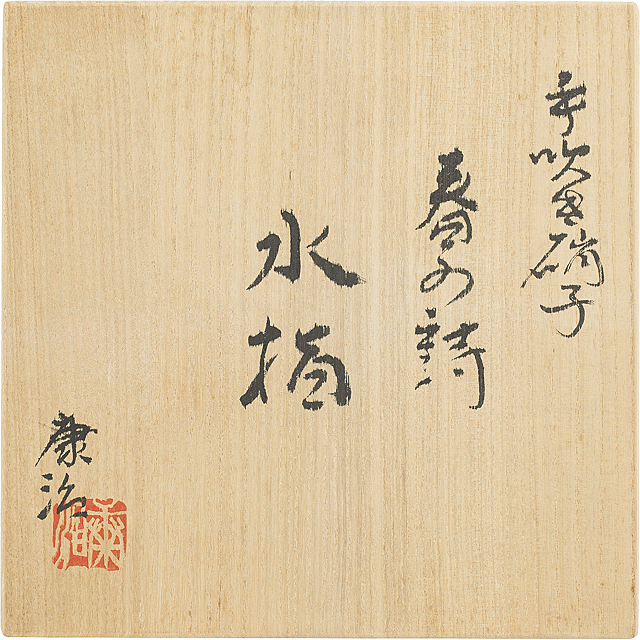 手吹き硝子
春の詩
水指
康治
康治